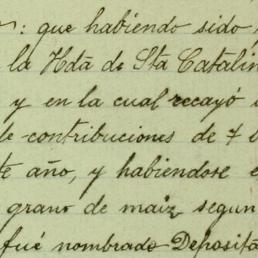 : que habiendo sido
la Hda de Sta Catalin
y en la cual recayó
de contribuciones de 7
te año, y habiendose e
grano de maiz segun
fué nombrado Deposita